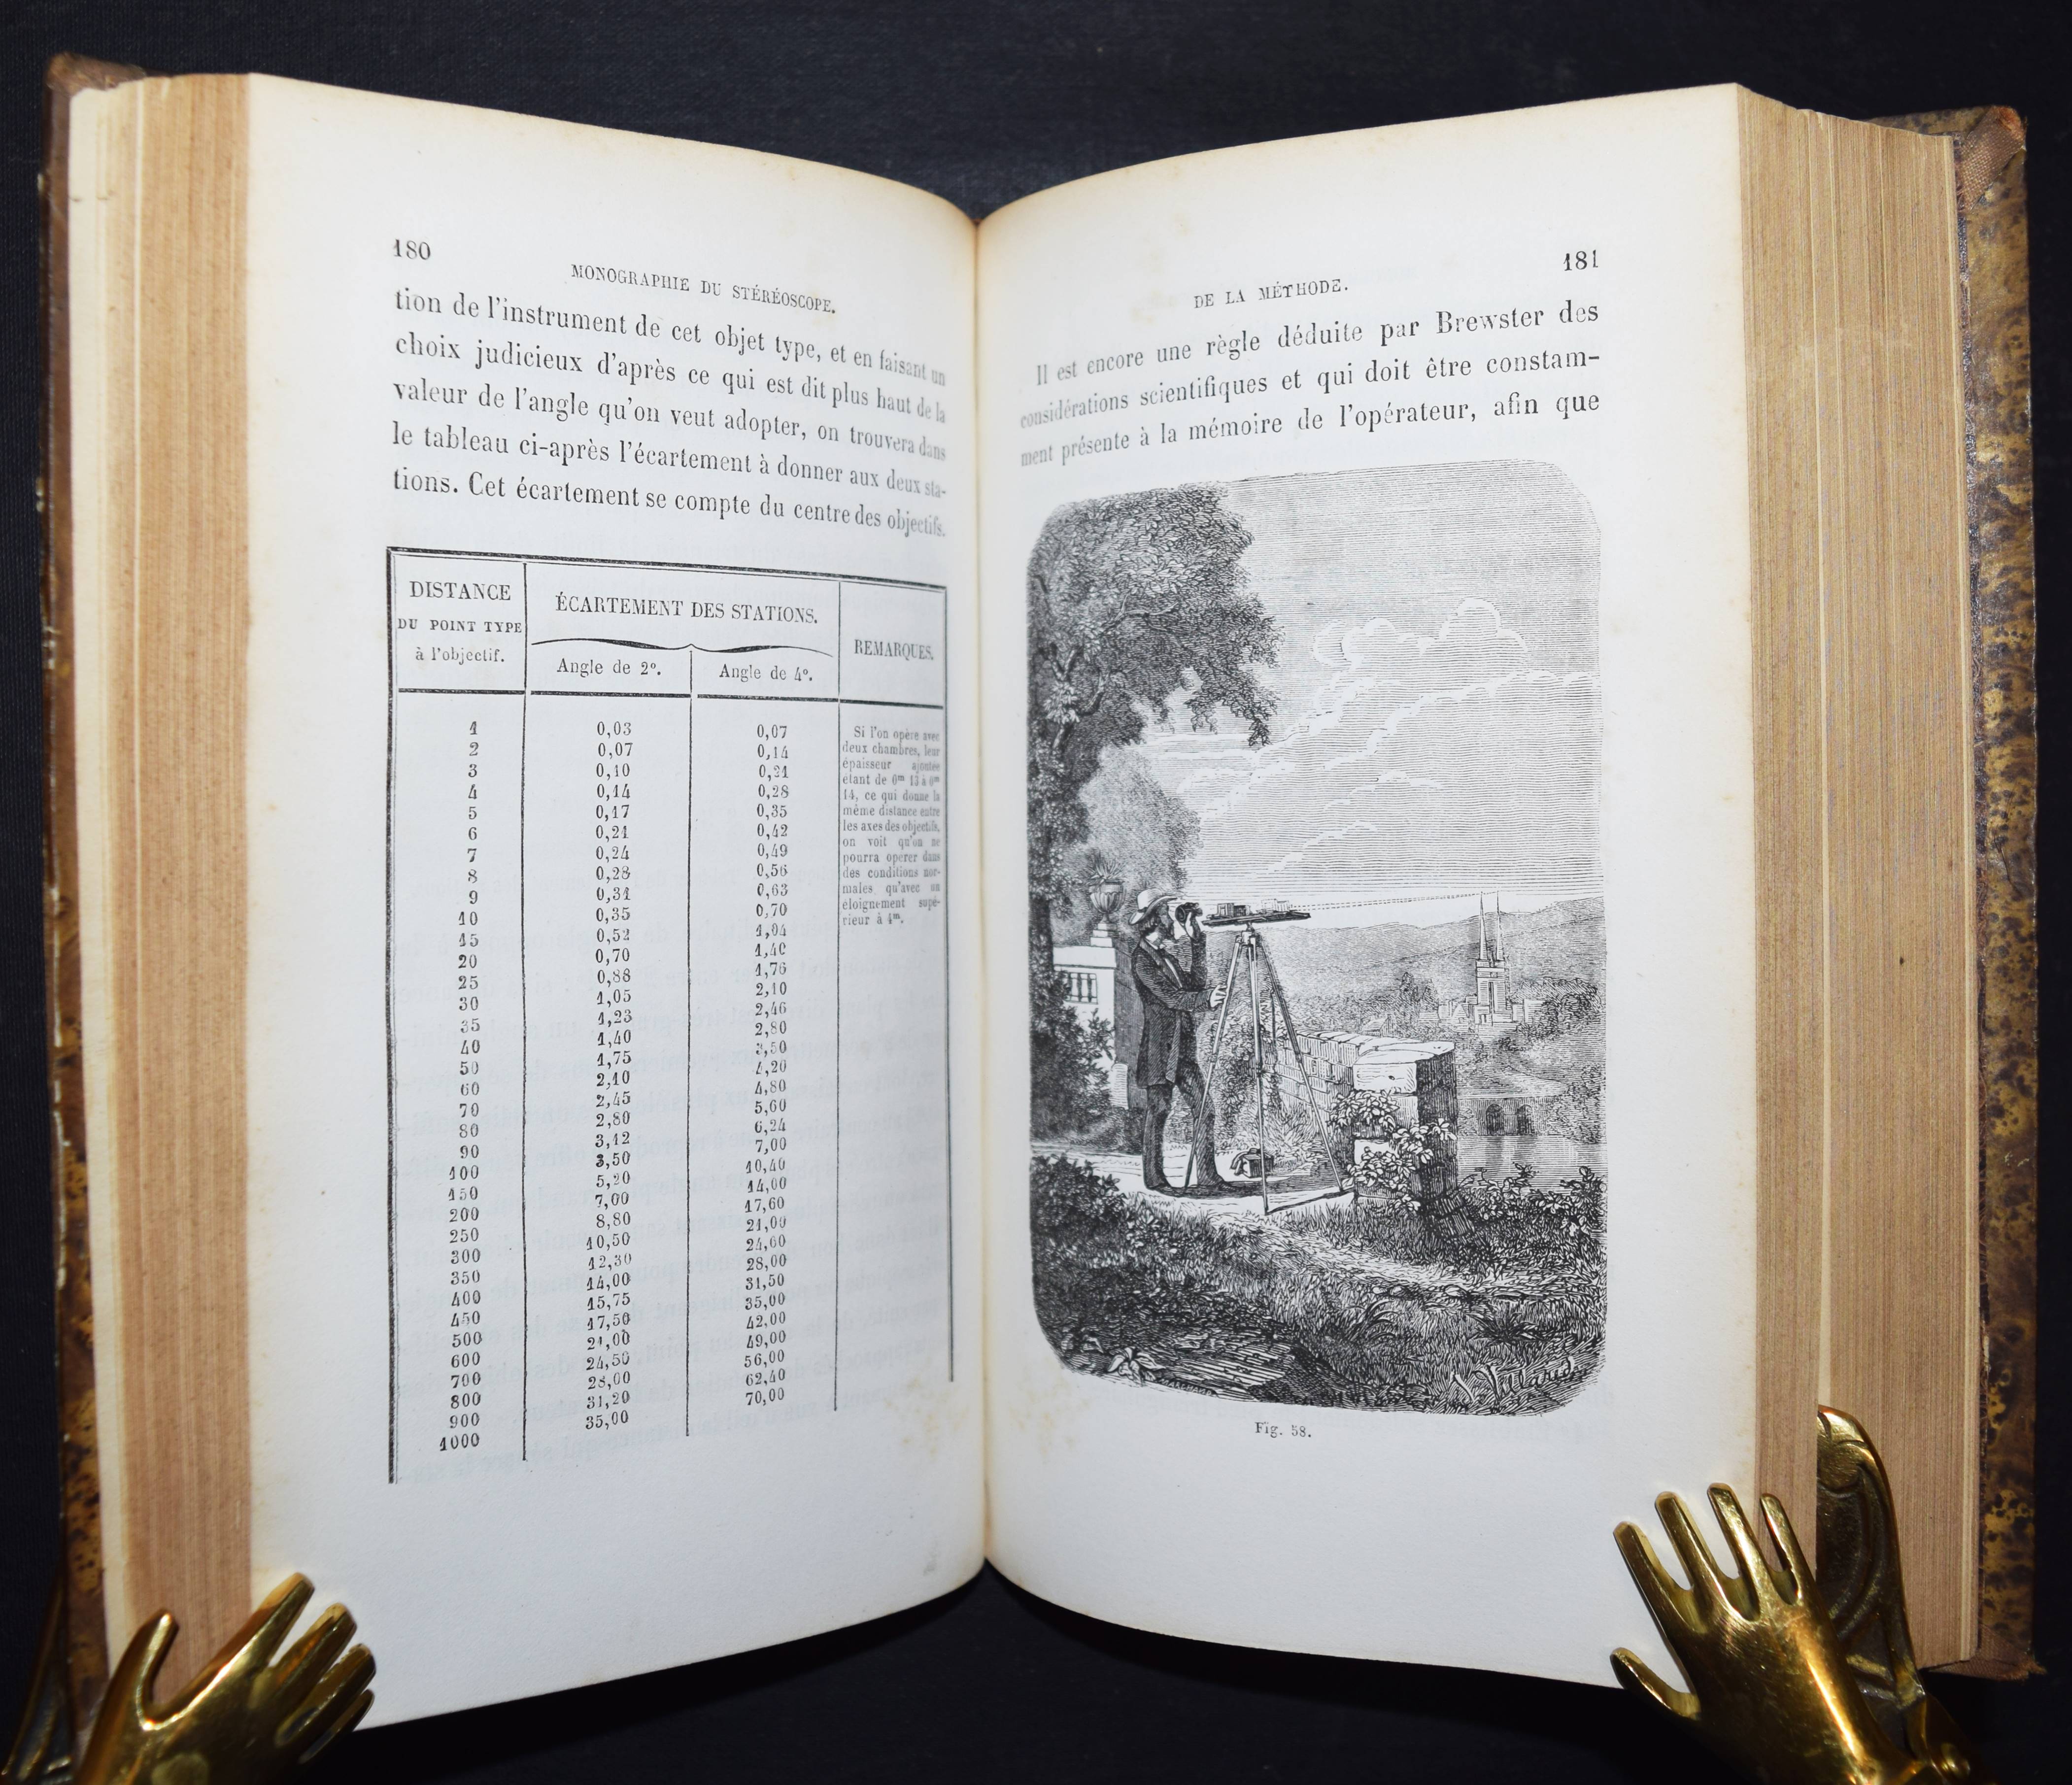 180
MONOGRAPHIE DU STÉRÉOSCOPE.
tion de l'instrument de cet objet type, et en faisant un
choix judicieux d'après ce qui est dit plus haut de la
valeur de l'angle qu'on veut adopter, on trouvera dans
le tableau ci-après l'écartement à donner aux deux sta-
tions. Cet écartement se compte du centre des objectifs.
DISTANCE
DU POINT TYPE
à l'objectif.
ÉCARTEMENT DES STATIONS.
Angle de 2°. Angle de 4°.
REMARQUES.
1 0,03 0,07
2 0,07 0,14
3 0,10 0,21
4 0,14 0,28
5 0,17 0,35
6 0,21 0,42
7 0,24 0,49
8 0,28 0,56
9 0,31 0,63
10 0,35 0,70
15 0,52 1,04
20 0,70 1,40
25 0,88 1,76
30 1,05 2,10
35 1,23 2,46
40 1,40 2,80
50 1,75 3,50
60 2,10 4,20
70 2,45 4,80
80 2,80 5,60
90 3,12 6,24
100 3,50 7,00
150 5,20 10,40
200 7,00 14,00
250 8,80 17,60
300 10,50 21,00
350 12,30 24,60
400 14,00 28,00
450 15,75 31,50
500 17,50 35,00
600 21,00 42,00
700 24,50 49,00
800 28,00 56,00
900 31,20 62,40
1000 35,00 70,00
Si l'on opère avec
deux chambres, leur
épaisseur ajoutée
étant de 0m 13 à 0m
14, ce qui donne la
même distance entre
les axes des objectifs,
on voit qu'on ne
pourra opérer dans
des conditions nor-
males qu'avec un
éloignement supé-
rieur à 4m.
181
DE LA MÉTHODE.
Il est encore une règle déduite par Brewster des
considérations scientifiques et qui doit être constam-
ment présente à la mémoire de l'opérateur, afin que
Fig. 58.